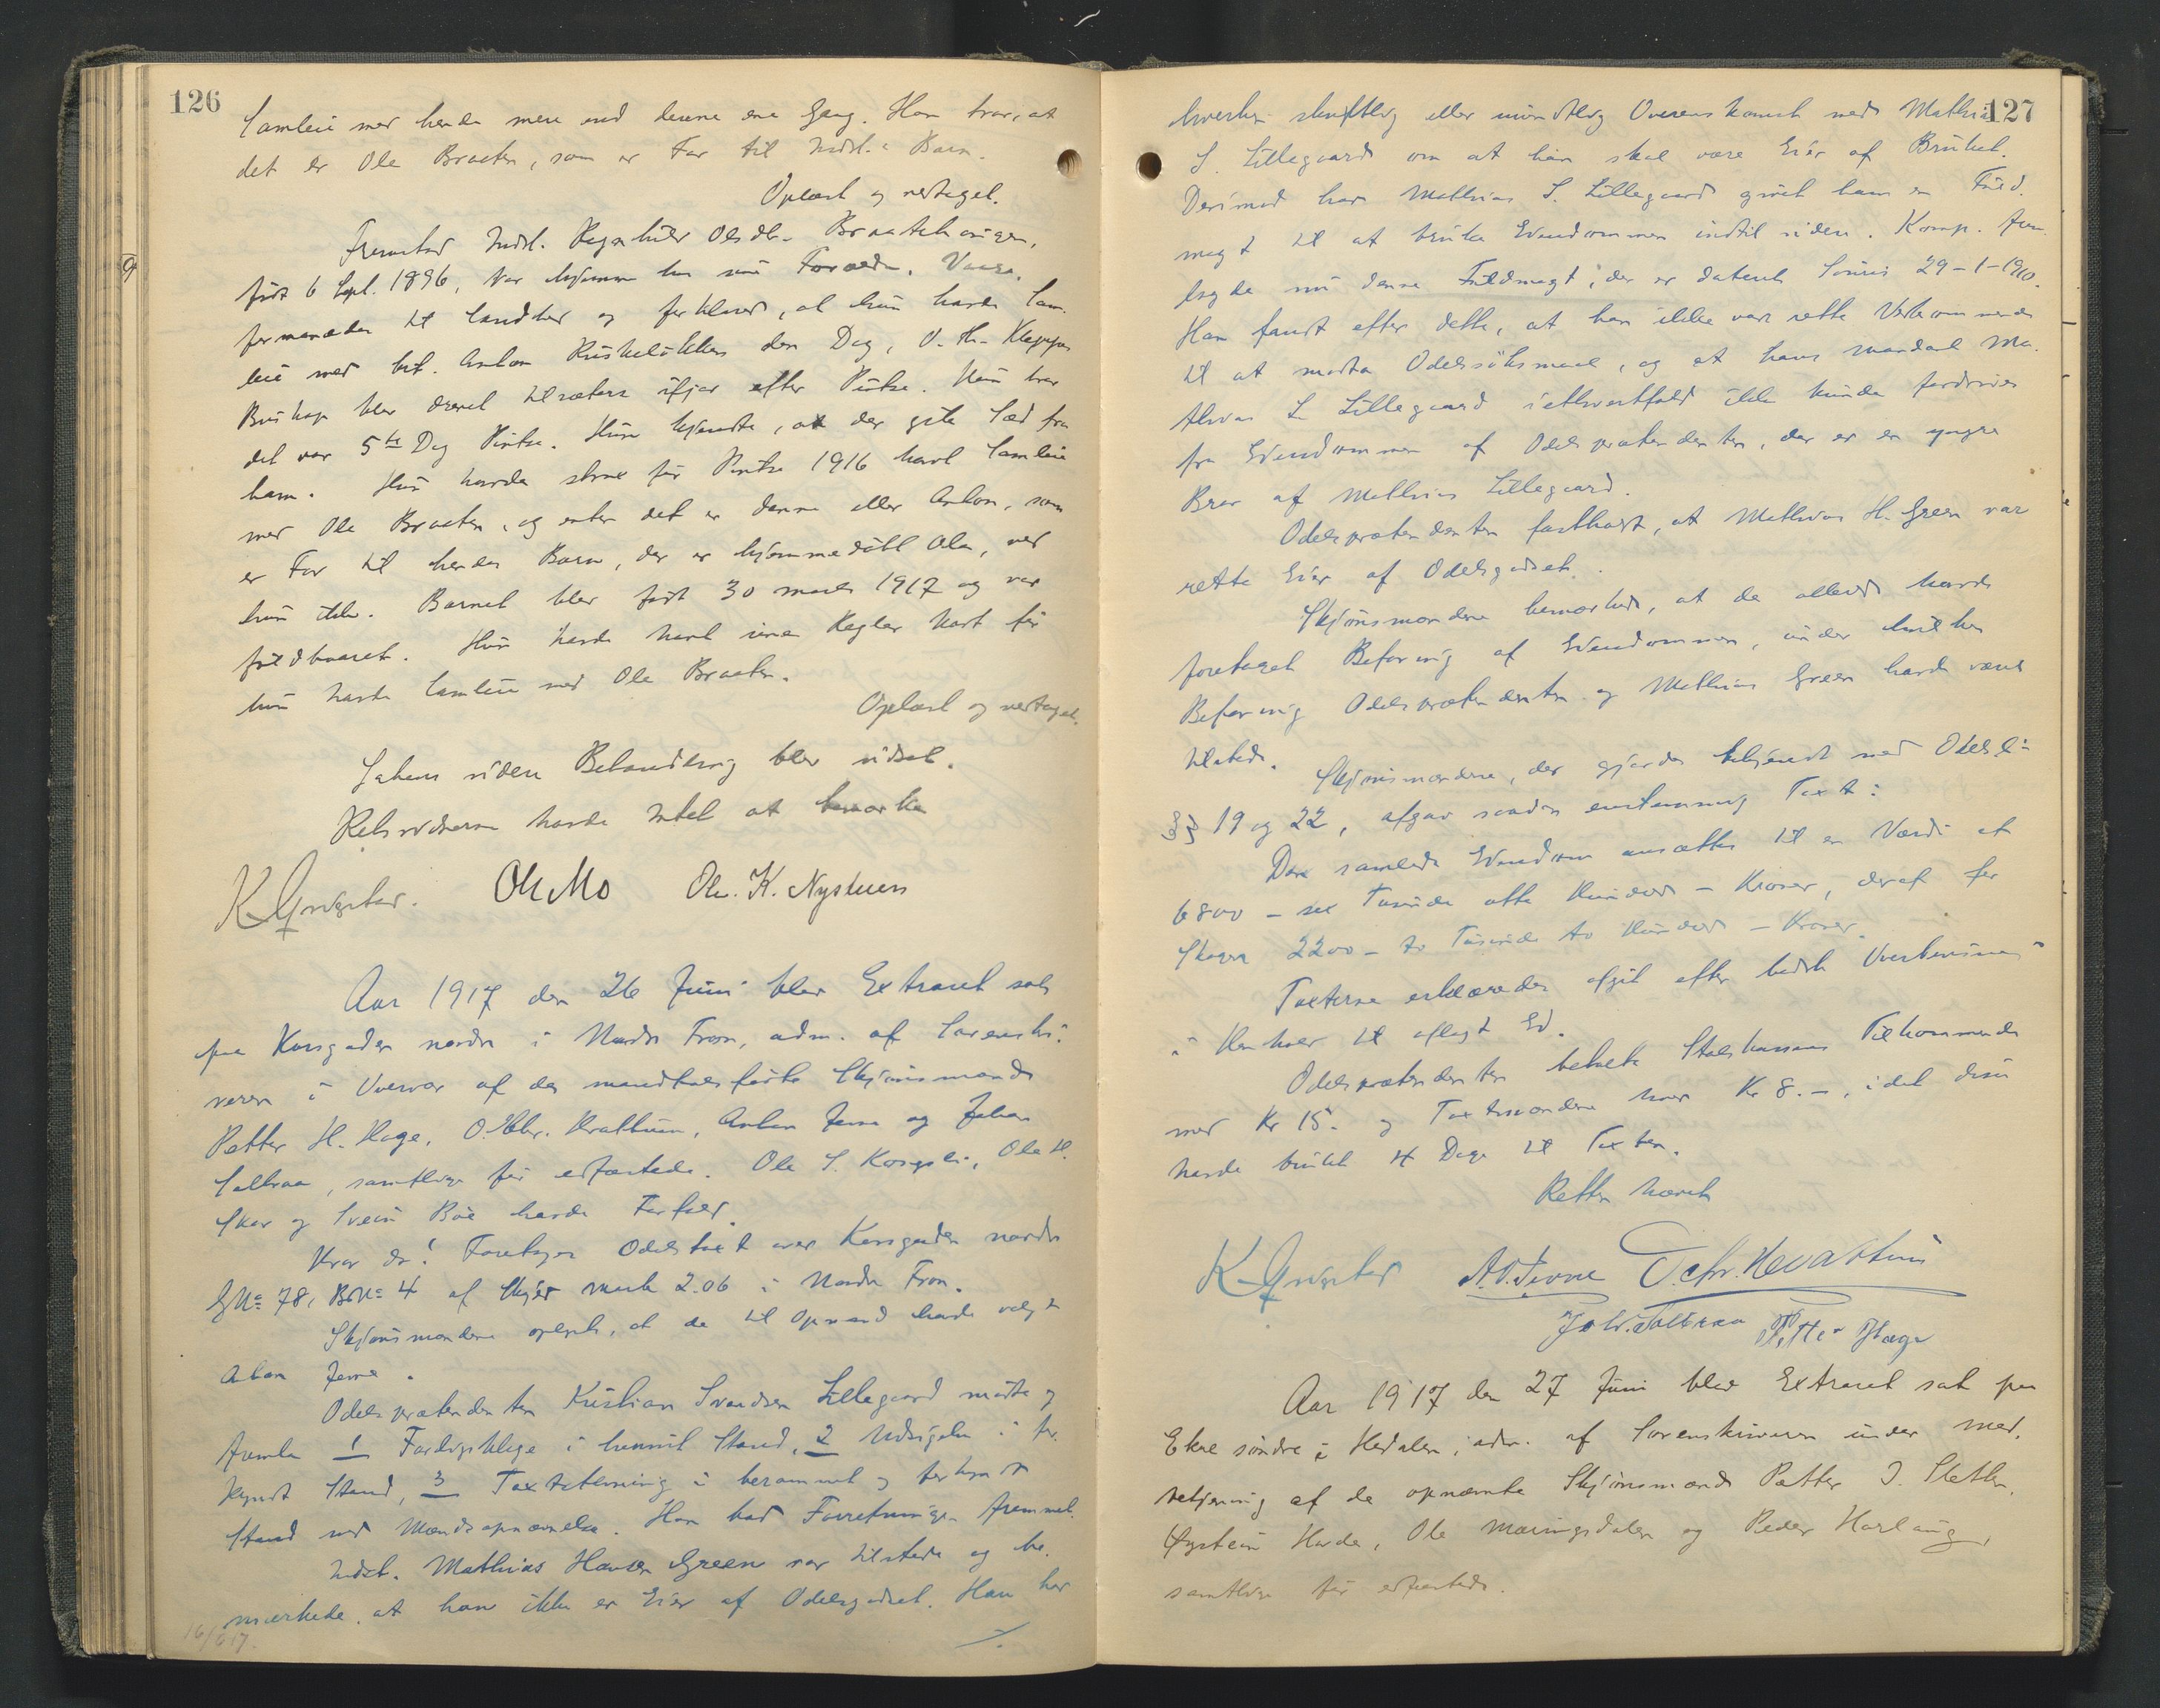 126
Samleie med hende mere end denne ene Gang. Han tror, at
det er Ole Braaten, som er Far til Indst.s Barn.
Oplæst og vedtaget.
Fremstod Indst. Ragnhild Olsdtr. Braatehaugen,
født 6 Sept. 1896, er hjemme hos sine Forældre. Vaars.
formanedes til Sandhed og forklared, at hun havde Sam-
leie med Anton Ruskeløkken den Dag, O. H. Kleppes
Buskap blev drevet tilsæters ifjor efter Pintse. Hun tror
det var 5te Dag Pintse. Hun kjendte, at der gik Sæd fra
ham. Hun havde strax før Pintse 1916 havt Samleie
med Ole Braaten, og enten det er denne eller Anton, som
er Far til hendes Barn, der er hjemmedøbt Ola, ved
hun ikke. Barnet blev født 30 marts 1917 og var
fuldbaaret. Hun havde havt sine Regler kort før
hun havde Samleie med Ole Braaten.
Oplæst og vedtaget.
Sakens videre Behandling blev udsat.
Retsvidnerne havde Intet at bemærke
Ole Mo Ole. K. Nystuen
Aar 1917 den 26 Juni blev Extraret sat
paa Korsgaden nordre i Nordre Fron, adm. af Sorenskri-
veren i Overvær af de mandtalsførte Skjønsmænd
Petter H. Hage, O. Chr. Kvattum, Anton Jevne og Johan
Solbraa, samtlige før edfæstede. Ole S. Korsgsli, Ole H.
Skar og Svein Bøe havde Forfald.
Hvor da: Foretoges Odelstaxt over Korsgaden nordre
GNo 78, BNo 4 af Skyld mark 2.06 i Nordre Fron.
Skjønsmændene oplyste, at de til Opmand havde valgt
Anton Jevne.
Odelsprætendenten Kristian Svendsen Lillegaard mødte og
fremla 1 Forligsklage i henvist Stand, 2 Udsigelse i for-
kyndt Stand, 3 Taxtstevning i berammet og forkyndt
Stand med Mændsopnævnelse. Han bad Forretningen fremmet.
Indst. Mathias Hansen Green var tilstede og be-
mærkede at han ikke er Eier af Odelsgodset. Han har
16/6 17.
127
hverken skriftlig eller mundtlig Overenskomst med Mathias
S. Lillegaard om at han skal være Eier af Bruket.
Derimod har Mathias S. Lillegaard givet ham en Fuld-
magt til at bruke Eiendommen indtil videre. Komp. frem-
lagde nu denne Fuldmagt, der er dateret Souris 29-1-1910.
Han fandt efter dette, at han ikke var rette Vedkommende
til at modta Odelssøksmaal, og at hans mandant Ma-
thias S. Lillegaard i ethvertfald ikke kunde fordrives
fra Eiendommen af Odelsprætendenten, der er en yngre
Bror af Mathias Lillegaard.
Odelsprætendenten fastholdt, at Mathias H. Green var
rette Eier af Odelsgodset.
Skjønsmændene bemærkede, at de allerede havde
foretaget Befaring af Eiendommen, under hvilken
Befaring Odelsprætendenten og Mathias Green havde været
tilstede.
Skjønsmændene, der gjordes bekjendt med Odelsl.s
§§ 19 og 22, afgav saadan enstemmig Taxt:
Den samlede Eiendom ansættes til en Værdi af
6800 - sex Tusinde otte Hundrede - Kroner, deraf for
Skogen 2200 - to Tusinde to Hundrede - Kroner.
Taxterne erklæredes afgit efter bedste Overbevisning
i Henhold til aflagt Ed.
Odelsprætendenten betalte Statskassens Tilkommende
med Kr 15.- og Taxtmændene hver Kr 8.-, idet disse
havde brukt 4 Dage til Taxten.
Retten hævet
A. O. Jevne O. Chr. Kvattum
Joh. Solbraa Petter Hage
Aar 1917 den 27 Juni blev Extraret sat paa
Ekre søndre i Hedalen, adm. af Sorenskriveren under med-
betjening af de opnævnte Skjønsmænd Petter I. Sletten,
Øystein Harde, Ole Mæringsdalen og Peder Harlaug,
samtlige før edfæstede.